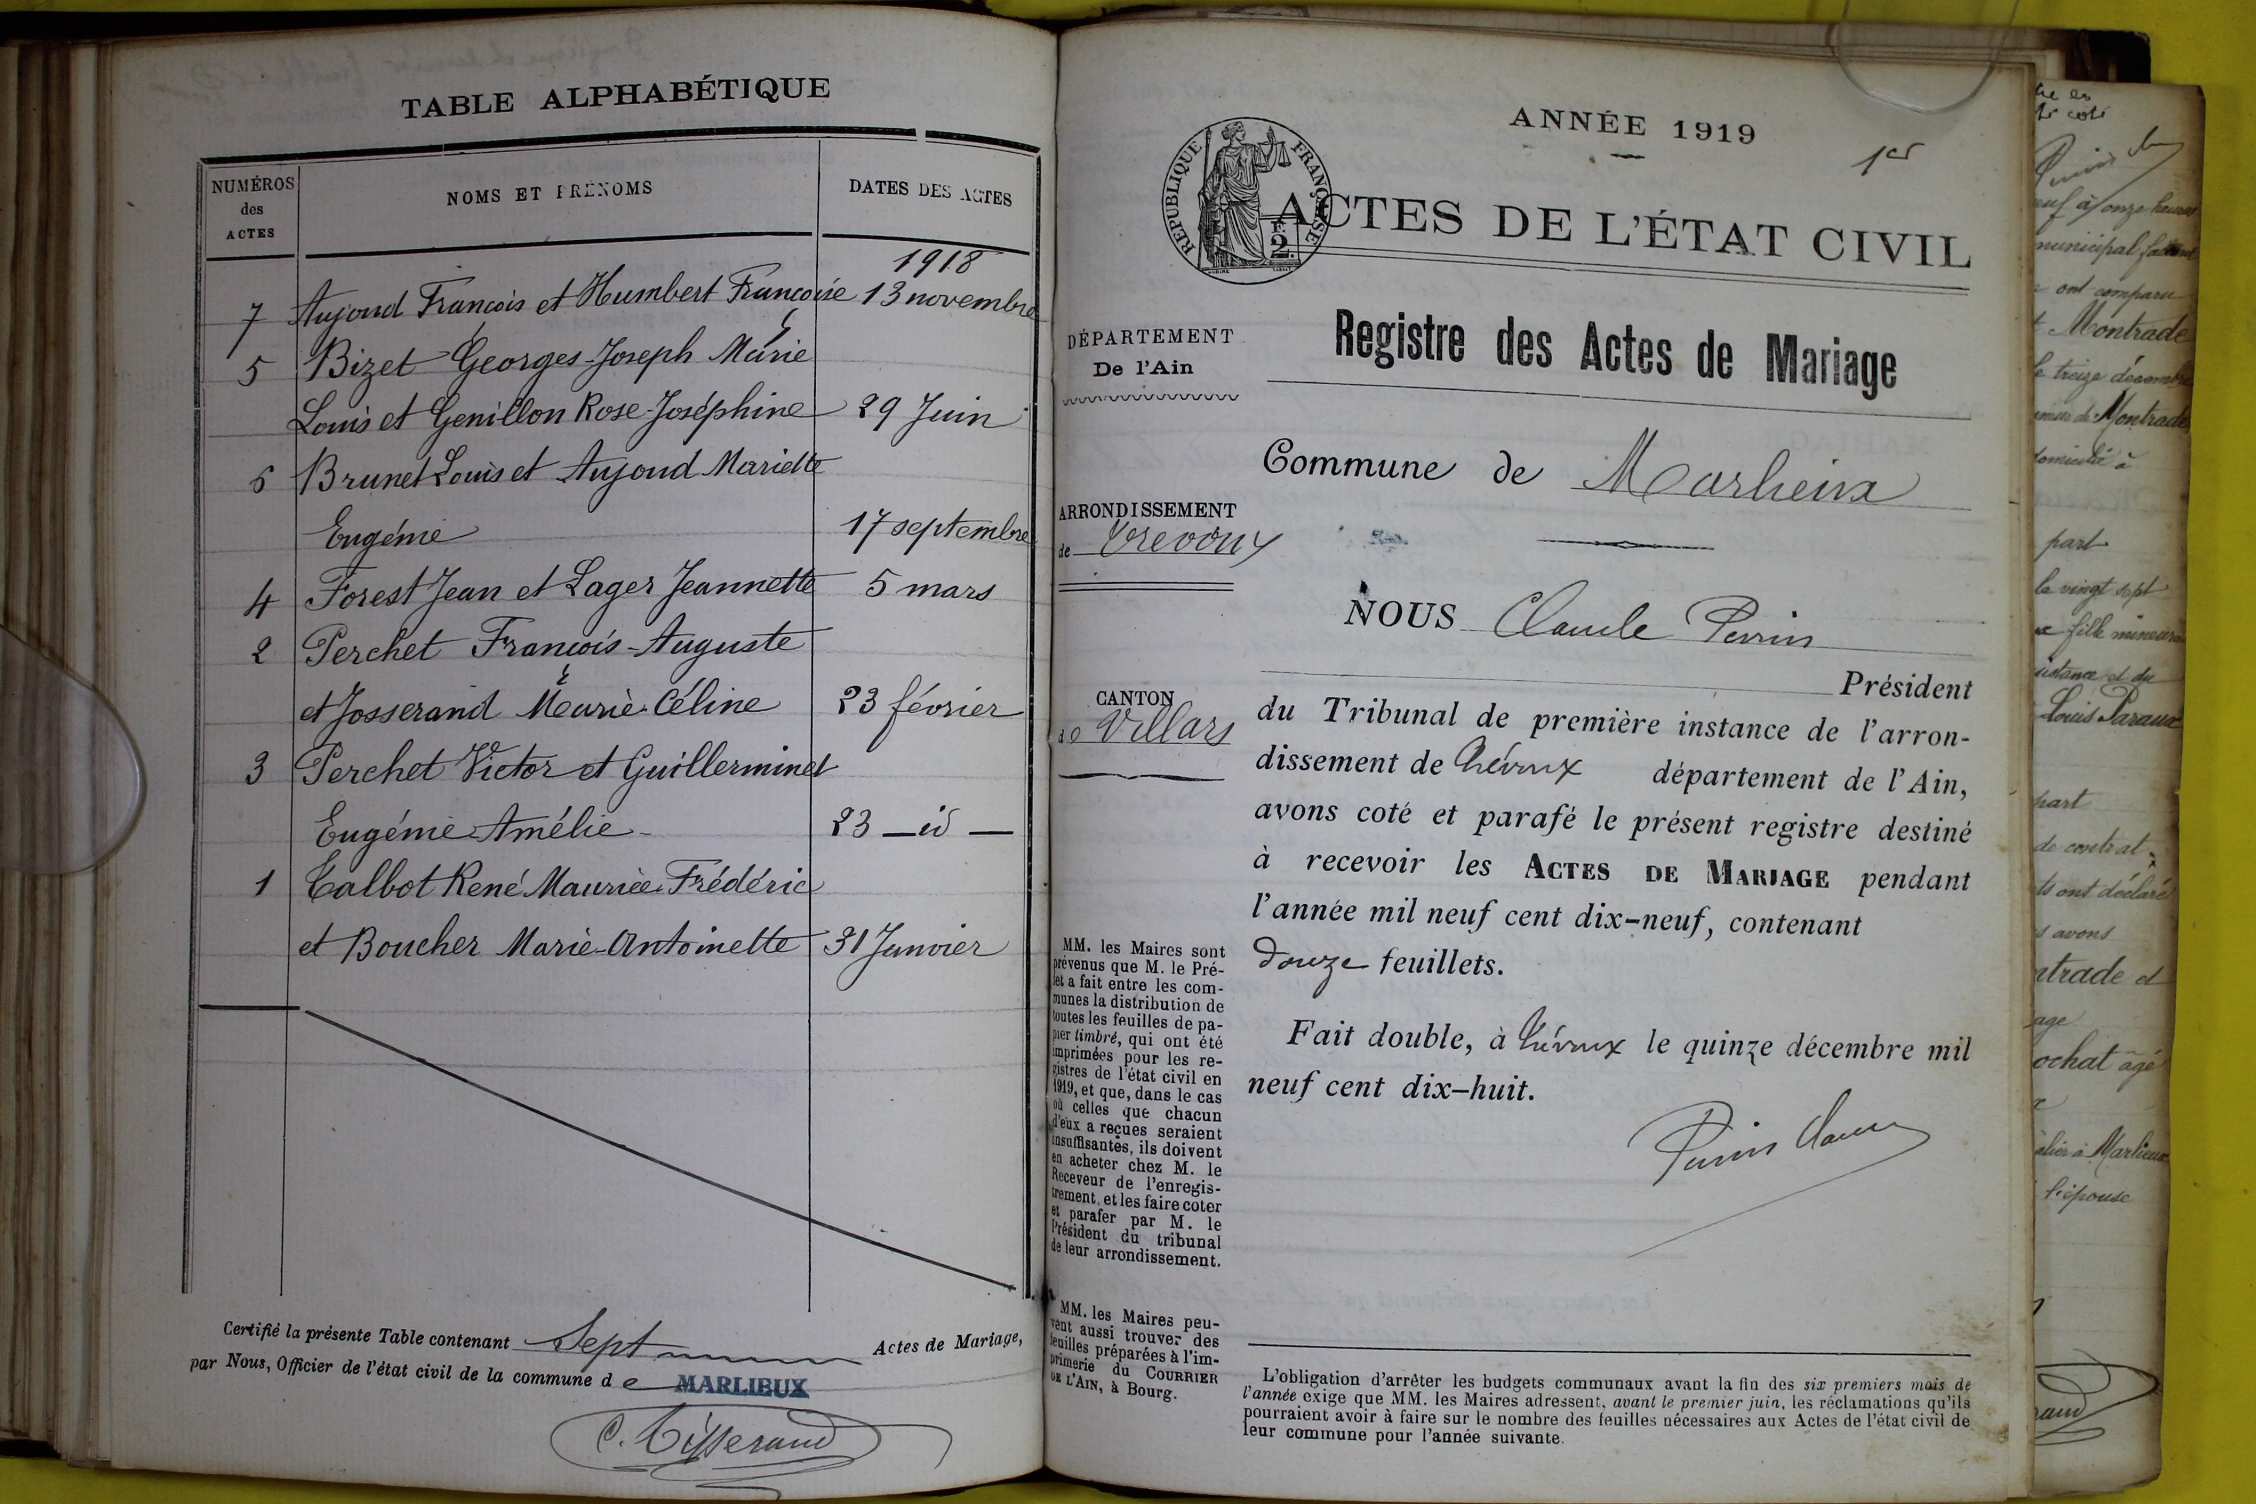 TABLE ALPHABÉTIQUE
NUMÉROS des ACTES
NOMS ET PRÉNOMS
DATES DES ACTES
1918
7 Aujoud François et Humbert Françoise 13 novembre
5 Bizet Georges-Joseph Marie
Louis et Genillon Rose-Joséphine 29 Juin
6 Brunet Louis et Aujoud Mariette
Eugénie 17 septembre
4 Forest Jean et Lager Jeannette 5 mars
2 Perchet François-Auguste
et Josserand Marie-Céline 23 février
3 Perchet Victor et Guillerminet
Eugénie Amélie 23 — id —
1 Talbot René Maurice Frédéric
et Boucher Marie-Antoinette 31 Janvier
Certifié la présente Table contenant Sept Actes de Mariage,
par Nous, Officier de l'état civil de la commune de MARLIEUX
C. Tisserand
ANNÉE 1919
1er
RÉPUBLIQUE FRANÇAISE
2
ACTES DE L'ÉTAT CIVIL
DÉPARTEMENT
De l'Ain
Registre des Actes de Mariage
Commune de Marlieux
ARRONDISSEMENT
de Trévoux
NOUS Claude Perrin
Président
CANTON
de Villars
du Tribunal de première instance de l'arron-
dissement de Trévoux département de l'Ain,
avons coté et parafé le présent registre destiné
à recevoir les ACTES DE MARIAGE pendant
l'année mil neuf cent dix-neuf, contenant
douze feuillets.
Fait double, à Trévoux le quinze décembre mil
neuf cent dix-huit.
Perrin Claude
MM. les Maires sont
prévenus que M. le Pré-
fet a fait entre les com-
munes la distribution de
toutes les feuilles de pa-
pier timbré, qui ont été
imprimées pour les re-
gistres de l'état civil en
1919, et que, dans le cas
où celles que chacun
d'eux a reçues seraient
insuffisantes, ils doivent
en acheter chez M. le
Receveur de l'enregis-
trement, et les faire coter
et parafer par M. le
Président du tribunal
de leur arrondissement.
MM. les Maires peu-
vent aussi trouver des
feuilles préparées à l'im-
primerie du COURRIER
DE L'AIN, à Bourg.
L'obligation d'arrêter les budgets communaux avant la fin des six premiers mois de
l'année exige que MM. les Maires adressent, avant le premier juin, les réclamations qu'ils
pourraient avoir à faire sur le nombre des feuilles nécessaires aux Actes de l'état civil de
leur commune pour l'année suivante.
à onze heures
municipal
ont comparu
Montrade
le treize décembre
Montrade
domicilié à
part
le vingt sept
fille mineure
et du
Louis Paraux
part
de contrat
ont déclaré
avons
et
âgé
à Marlieux
l'épouse